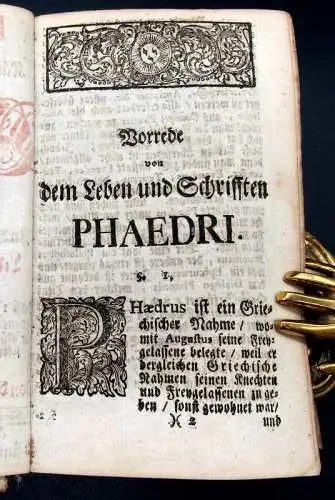 Vorrede
von
dem Leben und Schrifften
PHAEDRI.
§. 1.
PHædrus ist ein Grie-
chischer Nahme / wo-
mit Augustus seine Frey-
gelassene belegte / weil er
dergleichen Griechische
Nahmen seinen Knechten
und Freygelassenen zu ge-
ben / sonst gewohnet war /
)( 2 und